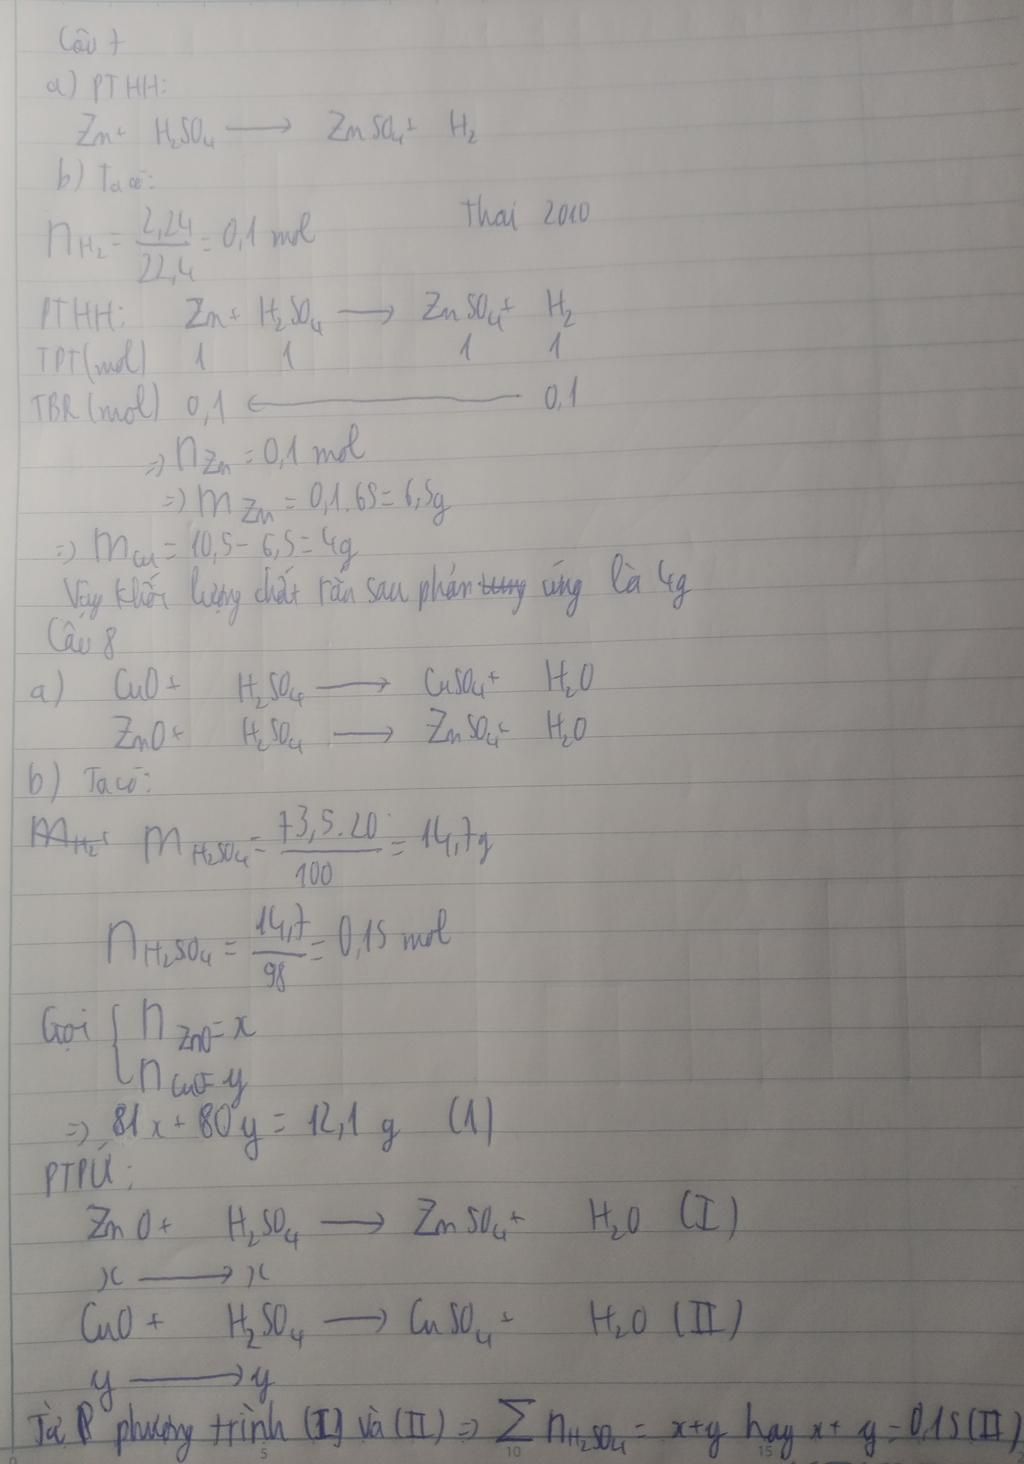 Câu 7
a) PTHH:
Zn + H₂SO₄ ⟶ ZnSO₄ + H₂
b) Ta có:
n H₂ = 2,24/22,4 = 0,1 mol
Thai 2010
PTHH: Zn + H₂SO₄ ⟶ ZnSO₄ + H₂
TPT(mol) 1 1 1 1
TBR(mol) 0,1 ⟵ 0,1
=> n Zn = 0,1 mol
=> m Zn = 0,1.65 = 6,5g
=> m Cu = 10,5 - 6,5 = 4g
Vậy khối lượng chất rắn sau phản ứng là 4g
Câu 8
a) CuO + H₂SO₄ ⟶ CuSO₄ + H₂O
ZnO + H₂SO₄ ⟶ ZnSO₄ + H₂O
b) Ta có:
m H₂ m H₂SO₄ = 73,5.20/100 = 14,7g
n H₂SO₄ = 14,7/98 = 0,15 mol
Gọi { n ZnO = x
n CuO = y
=> 81x + 80y = 12,1 g (1)
PTPỨ:
ZnO + H₂SO₄ ⟶ ZnSO₄ + H₂O (I)
x ⟶ x
CuO + H₂SO₄ ⟶ CuSO₄ + H₂O (II)
y ⟶ y
Từ P phương trình (I) và (II) => ∑ n H₂SO₄ = x+y hay x + y = 0,15 (II)
0 5 10 15